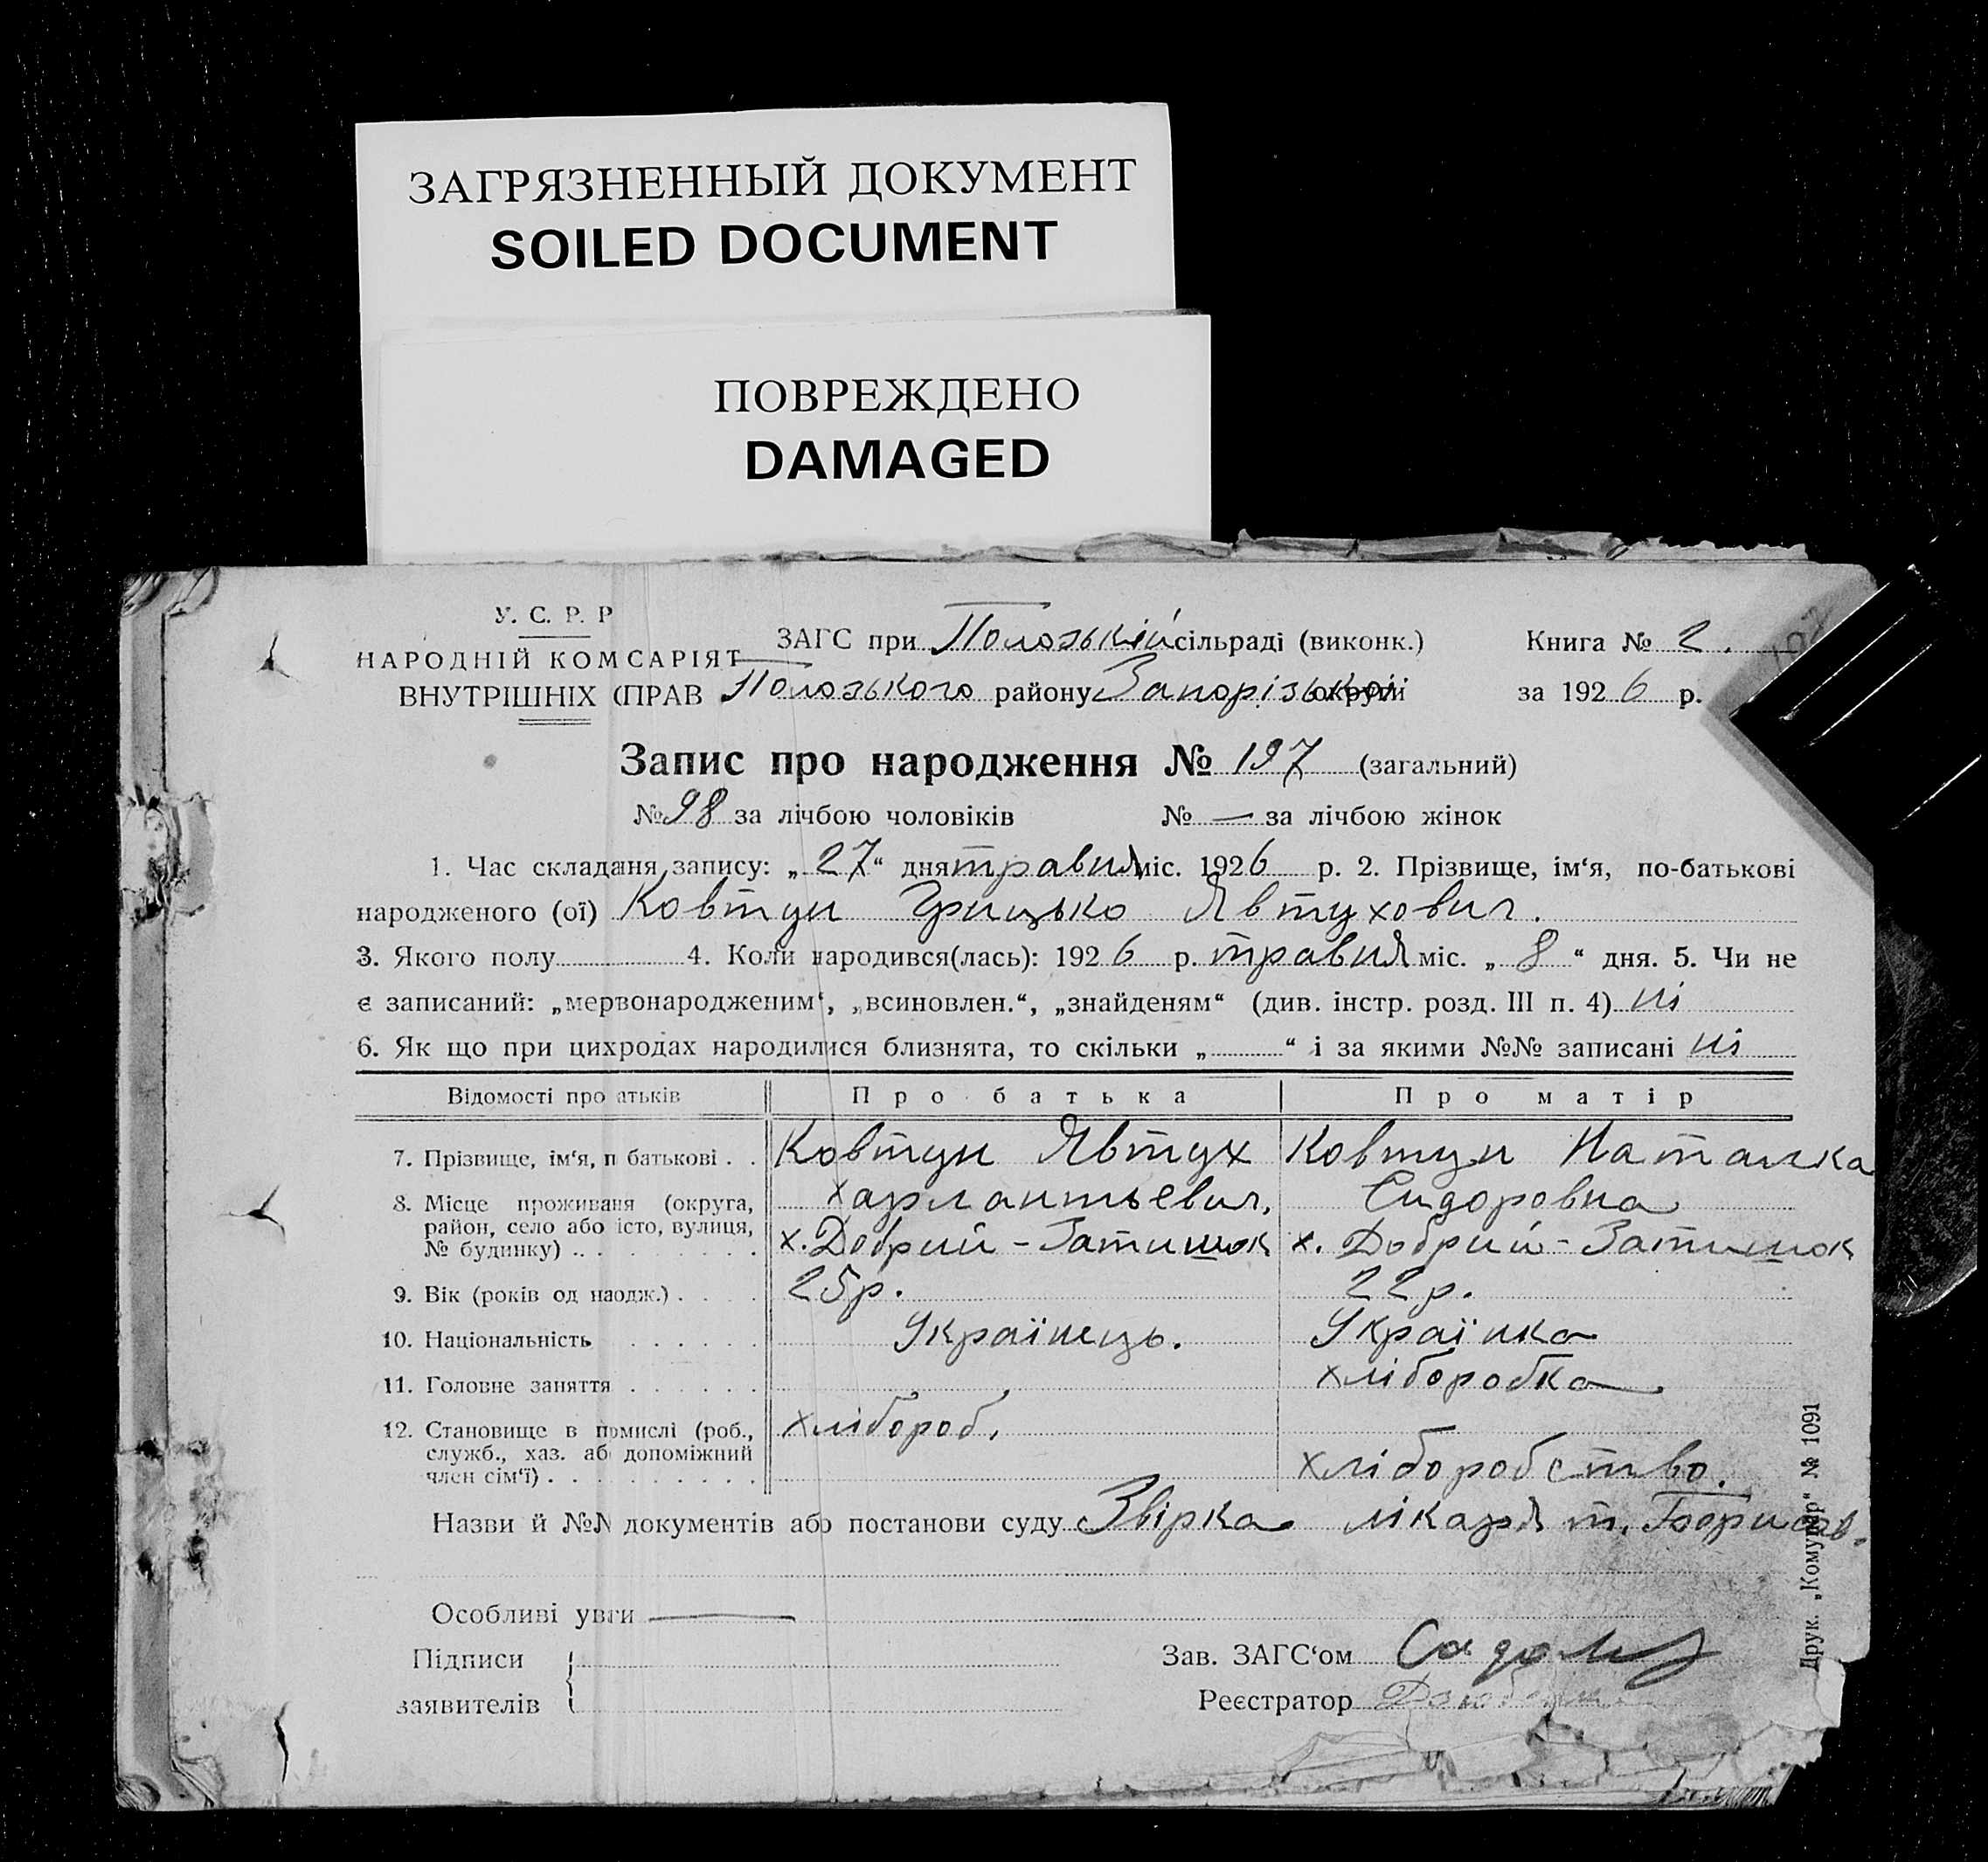 ЗАГРЯЗНЕННЫЙ ДОКУМЕНТ
SOILED DOCUMENT
ПОВРЕЖДЕНО
DAMAGED
У. С. Р. Р
НАРОДНІЙ КОМСАРІЯТ
ВНУТРІШНІХ СПРАВ
ЗАГС при Пологській сільраді (виконк.) Книга № 2.
Пологського району Запорізької округи за 1926 р.
Запис про народження № 197 (загальний)
№ 98 за лічбою чоловіків № — за лічбою жінок
1. Час складання запису: „27“ дня травня міс. 1926 р. 2. Прізвище, ім‘я, по-батькові
народженого (ої) Ковтун Грицько Явтухович.
3. Якого полу 4. Коли народився(лась): 1926 р. травня міс. „8“ дня. 5. Чи не
є записаний: „мервонародженим‘, „всиновлен.“, „знайденям“ (див. інстр. розд. III п. 4) ні
6. Як що при цих родах народилися близнята, то скільки „ “ і за якими №№ записані ні
Відомості про атьків Про батька Про матір
7. Прізвище, ім‘я, п батькові . . Ковтун Явтух Харлантьевич, Ковтун Наталка Сидоровна
8. Місце проживаня (округа, район, село або істо, вулиця, № будинку) . . х. Добрий-Затишок х. Добрий-Затишок
9. Вік (років од наодж.) . . . . 25р. 22р.
10. Національність . . . . . . Українець. Українка
11. Головне заняття . . . . . . хліборобка
12. Становище в помислі (роб., служб., хаз. аб допоміжний член сім‘ї) . . . хлібороб, хліборобство.
Назви й №№ документів або постанови суду Звірка лікаря т.
Особливі уваги —
Підписи
заявителів
Зав. ЗАГС‘ом
Реєстратор
Друк. „Комунар“ № 1091